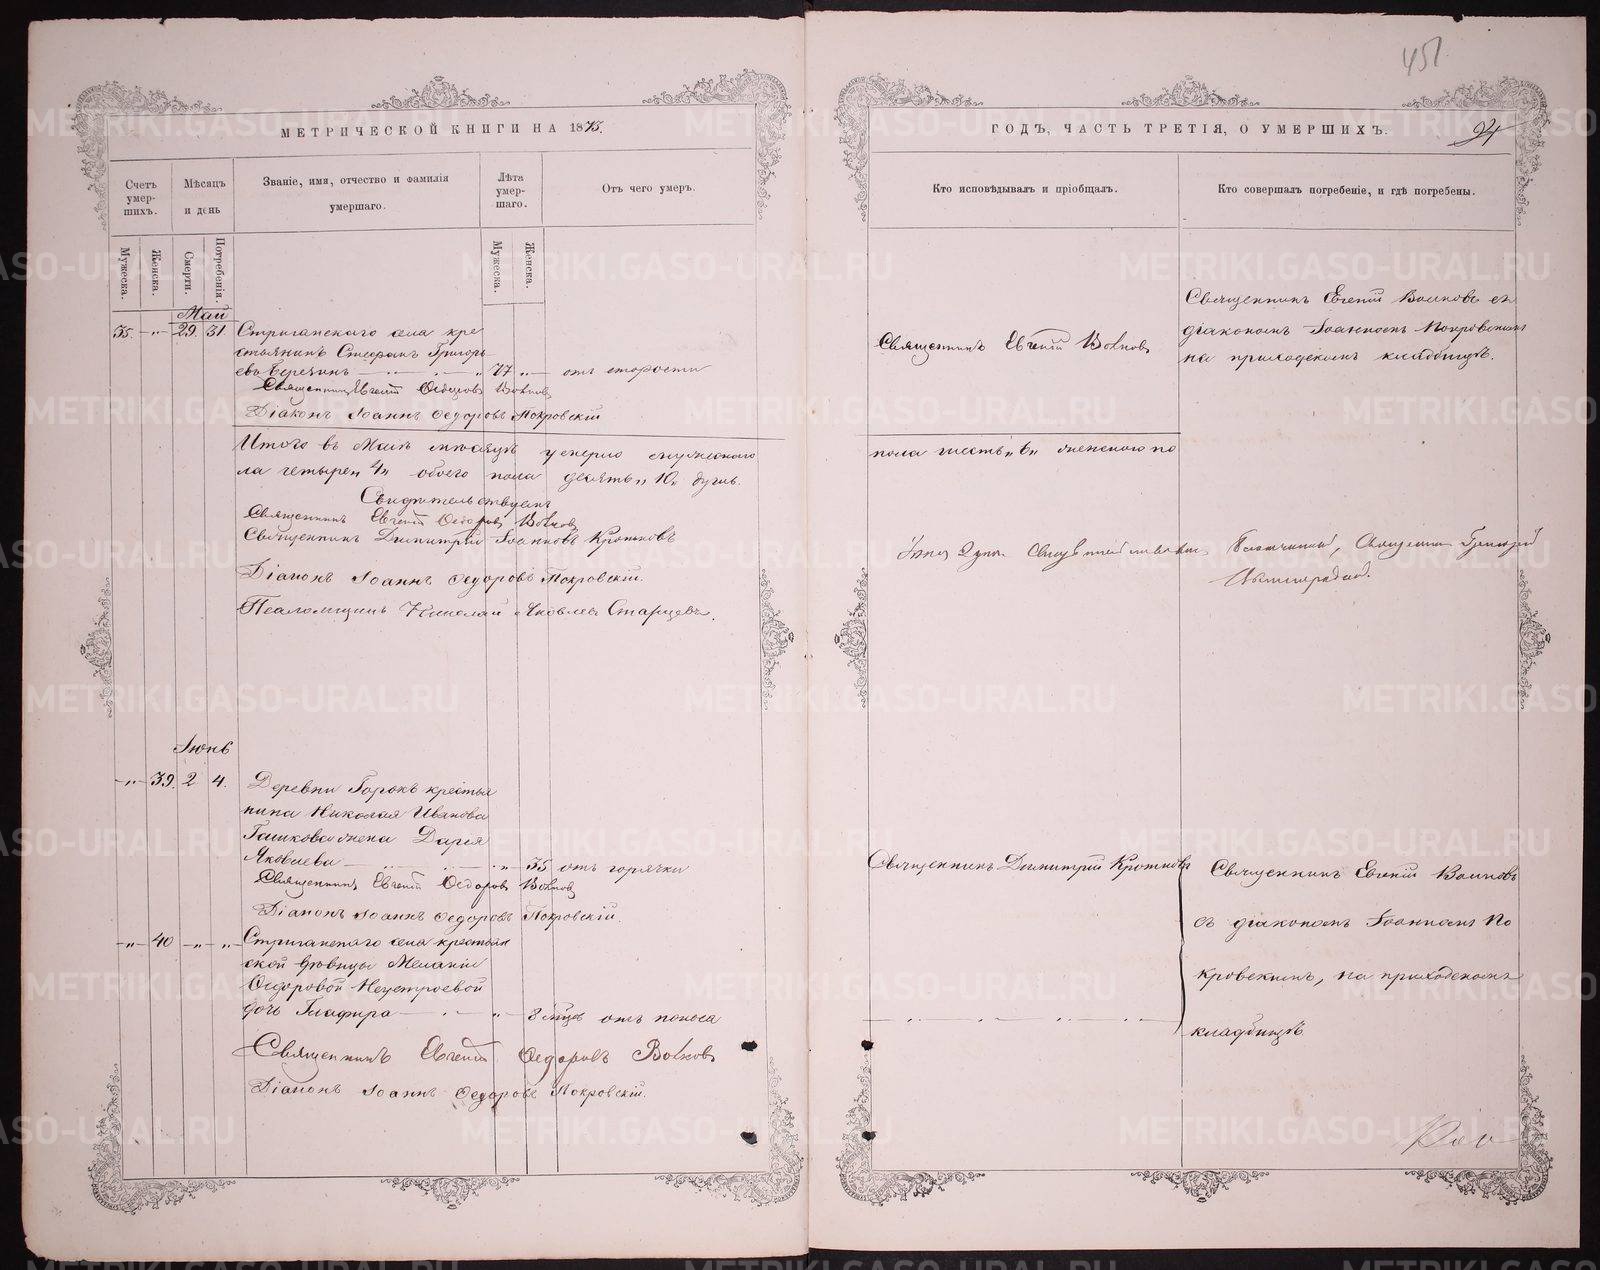 451
МЕТРИЧЕСКОЙ КНИГИ НА 1875.
Счетъ умер-шихъ.
Мѣсяцъ и день
Званіе, имя, отчество и фамилія умершаго.
Лѣта умер-шаго.
Отъ чего умеръ.
Мужеска.
Женска.
Смерти.
Погребенія.
Мужеска.
Женска.
Май
35. - „ - 29. 31. Стриганскаго села кре
стьянинъ Стефанъ Григорь
евъ Берекинъ 77 „ - отъ старости
Священникъ Евгеній Ѳедоровъ Волковъ
Діаконъ Іоаннъ Ѳедоровъ Покровскій
Итого въ Маѣ мѣсяцѣ умерло мужескаго
ла четыре „4„ обоего пола десять „10„ душъ.
Свидѣтельствуемъ
Священникъ Евгеній Ѳедоровъ Волковъ
Священникъ Димитрій Іоанновъ Кротковъ
Діаконъ Іоаннъ Ѳедоровъ Покровскій.
Псаломщикъ Николай Яковлевъ Старцевъ.
Іюнь
- „ - 39. 2 4. Деревни Горокъ крестья
нина Николая Иванова
Гашкова жена Дарья
Яковлева - „ - 35 отъ горячки
Священникъ Евгеній Ѳедоровъ Волковъ
Діаконъ Іоаннъ Ѳедоровъ Покровскій.
- „ - 40 - „ - „ - Стриганскаго села крестьян
ской дѣвицы Меланіи
Ѳедоровой Неустроевой
дочь Глафира - „ - 8 мѣсяц отъ поноса
Священникъ Евгеній Ѳедоровъ Волковъ
Діаконъ Іоаннъ Ѳедоровъ Покровскій.
ГОДЪ, ЧАСТЬ ТРЕТІЯ, О УМЕРШИХЪ.
94
Кто исповѣдывалъ и пріобщалъ.
Кто совершалъ погребеніе, и гдѣ погребены.
Священникъ Евгеній Волковъ
Священникъ Евгеній Волковъ съ
діакономъ Іоанномъ Покровскимъ
на приходскомъ кладбищѣ.
пола шесть „6„ женскаго по
Благочинный, Священникъ Григорій
Священникъ Димитрій Кротковъ
Священникъ Евгеній Волковъ
съ діакономъ Іоанномъ По
кровскимъ, на приходскомъ
кладбищѣ.
METRIKI.GASO-URAL.RU